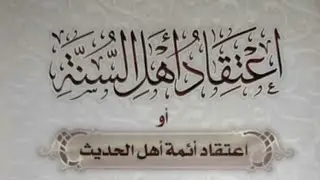 اعْتِقَادُ أَهْلِ السُّنَّةِ
أو
اعتقاد أئمة أهل الحديث